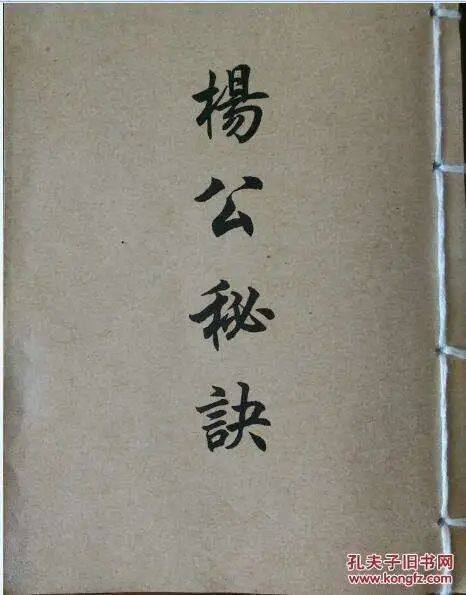 楊公秘訣
孔夫子旧书网
www.kongfz.com